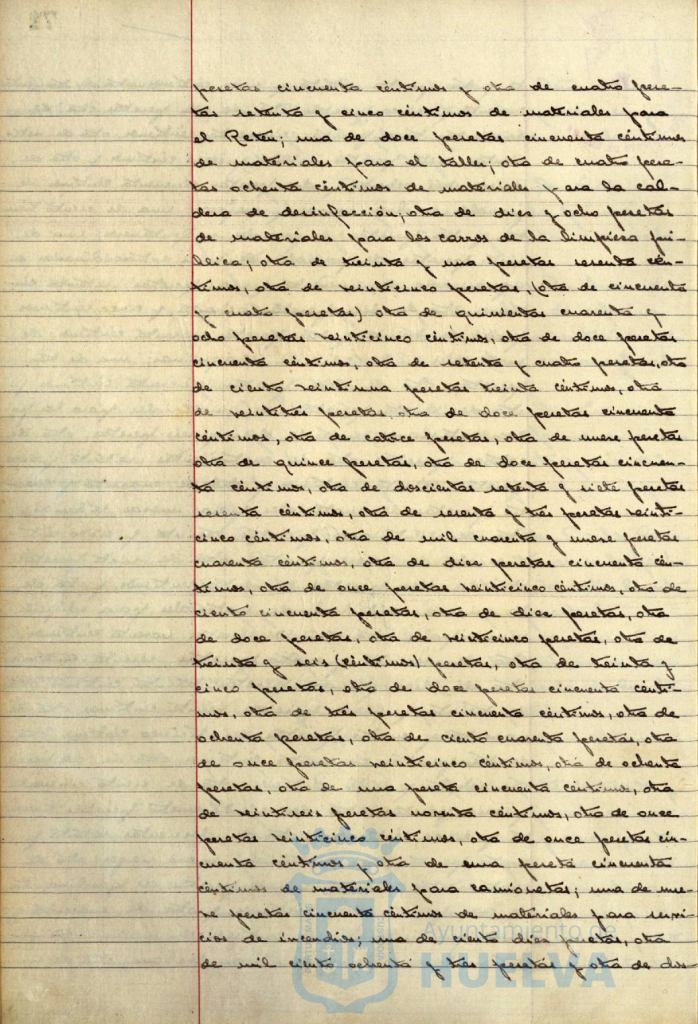 pesetas cincuenta céntimos y otra de cuatro pese-
tas setenta y cinco céntimos de materiales para
el Retén; una de doce pesetas cincuenta céntimos
de materiales para el taller; otra de cuatro pese-
tas ochenta céntimos de materiales para la cal-
dera de desinfección; otra de dies y ocho pesetas
de materiales para los carros de la limpiesa pú-
blica; otra de treinta y una pesetas sesenta cén-
timos, otra de veinticinco pesetas, (otra de cincuenta
y cuatro pesetas) otra de quinientas cuarenta y
ocho pesetas veinticinco céntimos, otra de doce pesetas
cincuenta céntimos, otra de setenta y cuatro pesetas, otra
de ciento veintiuna pesetas treinta céntimos, otra
de veintitrés pesetas, otra de doce pesetas cincuenta
céntimos, otra de catorce pesetas, otra de nueve pesetas
otra de quince pesetas, otra de doce pesetas cincuen-
ta céntimos, otra de doscientas setenta y siete pesetas
sesenta céntimos, otra de sesenta y tres pesetas veinti-
cinco céntimos, otra de mil cuarenta y nueve pesetas
cuarenta céntimos, otra de diez pesetas cincuenta cén-
timos, otra de once pesetas veinticinco céntimos, otra de
ciento cincuenta pesetas, otra de diez pesetas, otra
de doce pesetas, otra de veinticinco pesetas, otra de
treinta y seis (céntimos) pesetas, otra de treinta y
cinco pesetas, otra de doce pesetas cincuenta cénti-
mos, otra de tres pesetas cincuenta céntimos, otra de
ochenta pesetas, otra de ciento cuarenta pesetas, otra
de once pesetas veinticinco céntimos, otra de ochenta
pesetas, otra de una peseta cincuenta céntimos, otra
de veintiseis pesetas noventa céntimos, otra de once
pesetas veinticinco céntimos, otra de once pesetas cin-
cuenta céntimos y otra de una peseta cincuenta
céntimos de materiales para camionetas; una de nue-
ve pesetas cincuenta céntimos de materiales para servi-
cios de incendios; una de ciento dies pesetas, otra
de mil ciento ochenta y tres pesetas y otra de dos-
Ayuntamiento de
HUELVA